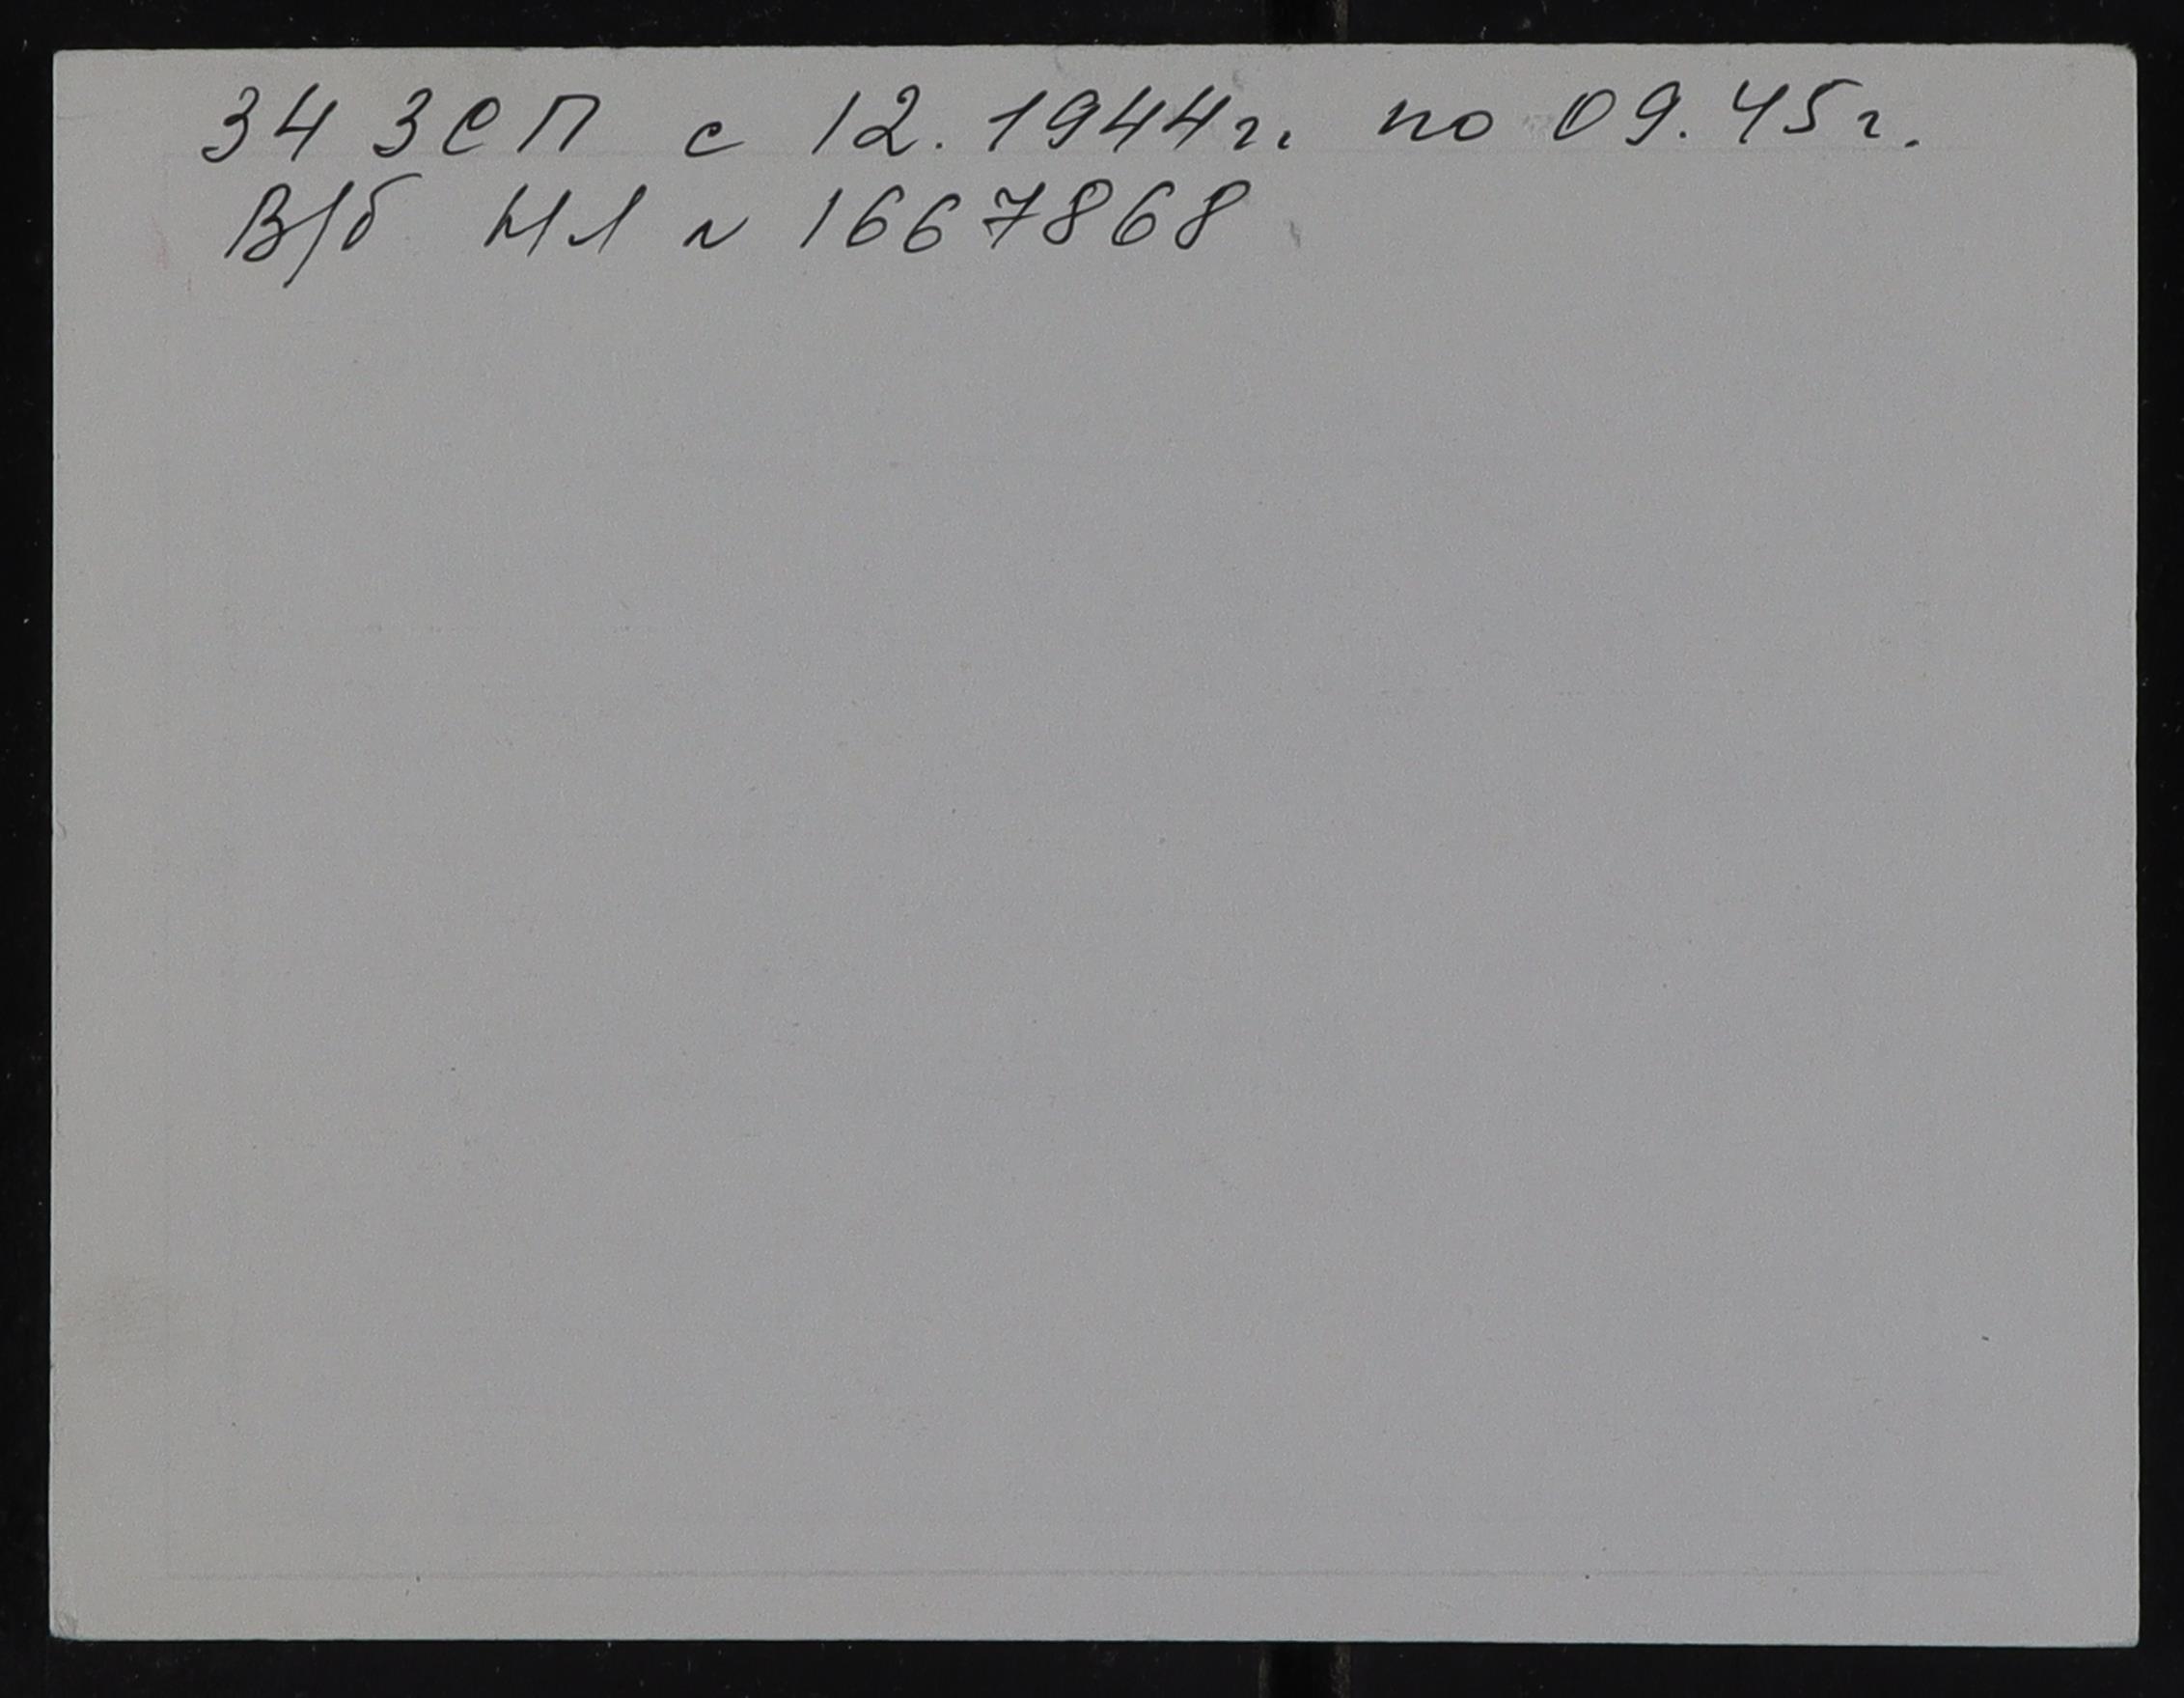 34 ЗСП с 12.1944г. по 09.45г.
В/б НЛ № 1667868